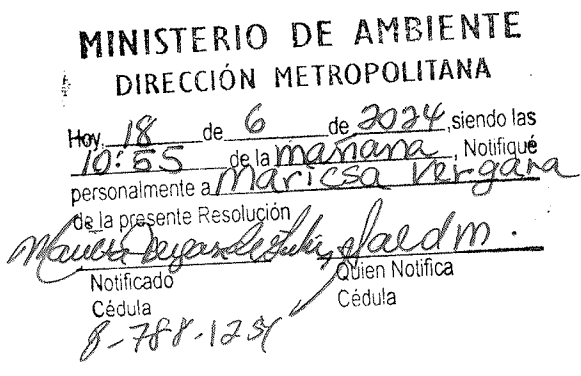 MINISTERIO DE AMBIENTE
DIRECCIÓN METROPOLITANA
Hoy, 18 de 6 de 2024, siendo las
10:55 de la mañana, Notifiqué
personalmente a maricsa vergara
de la presente Resolución
Notificado Quien Notifica
Cédula Cédula
8-788-1254